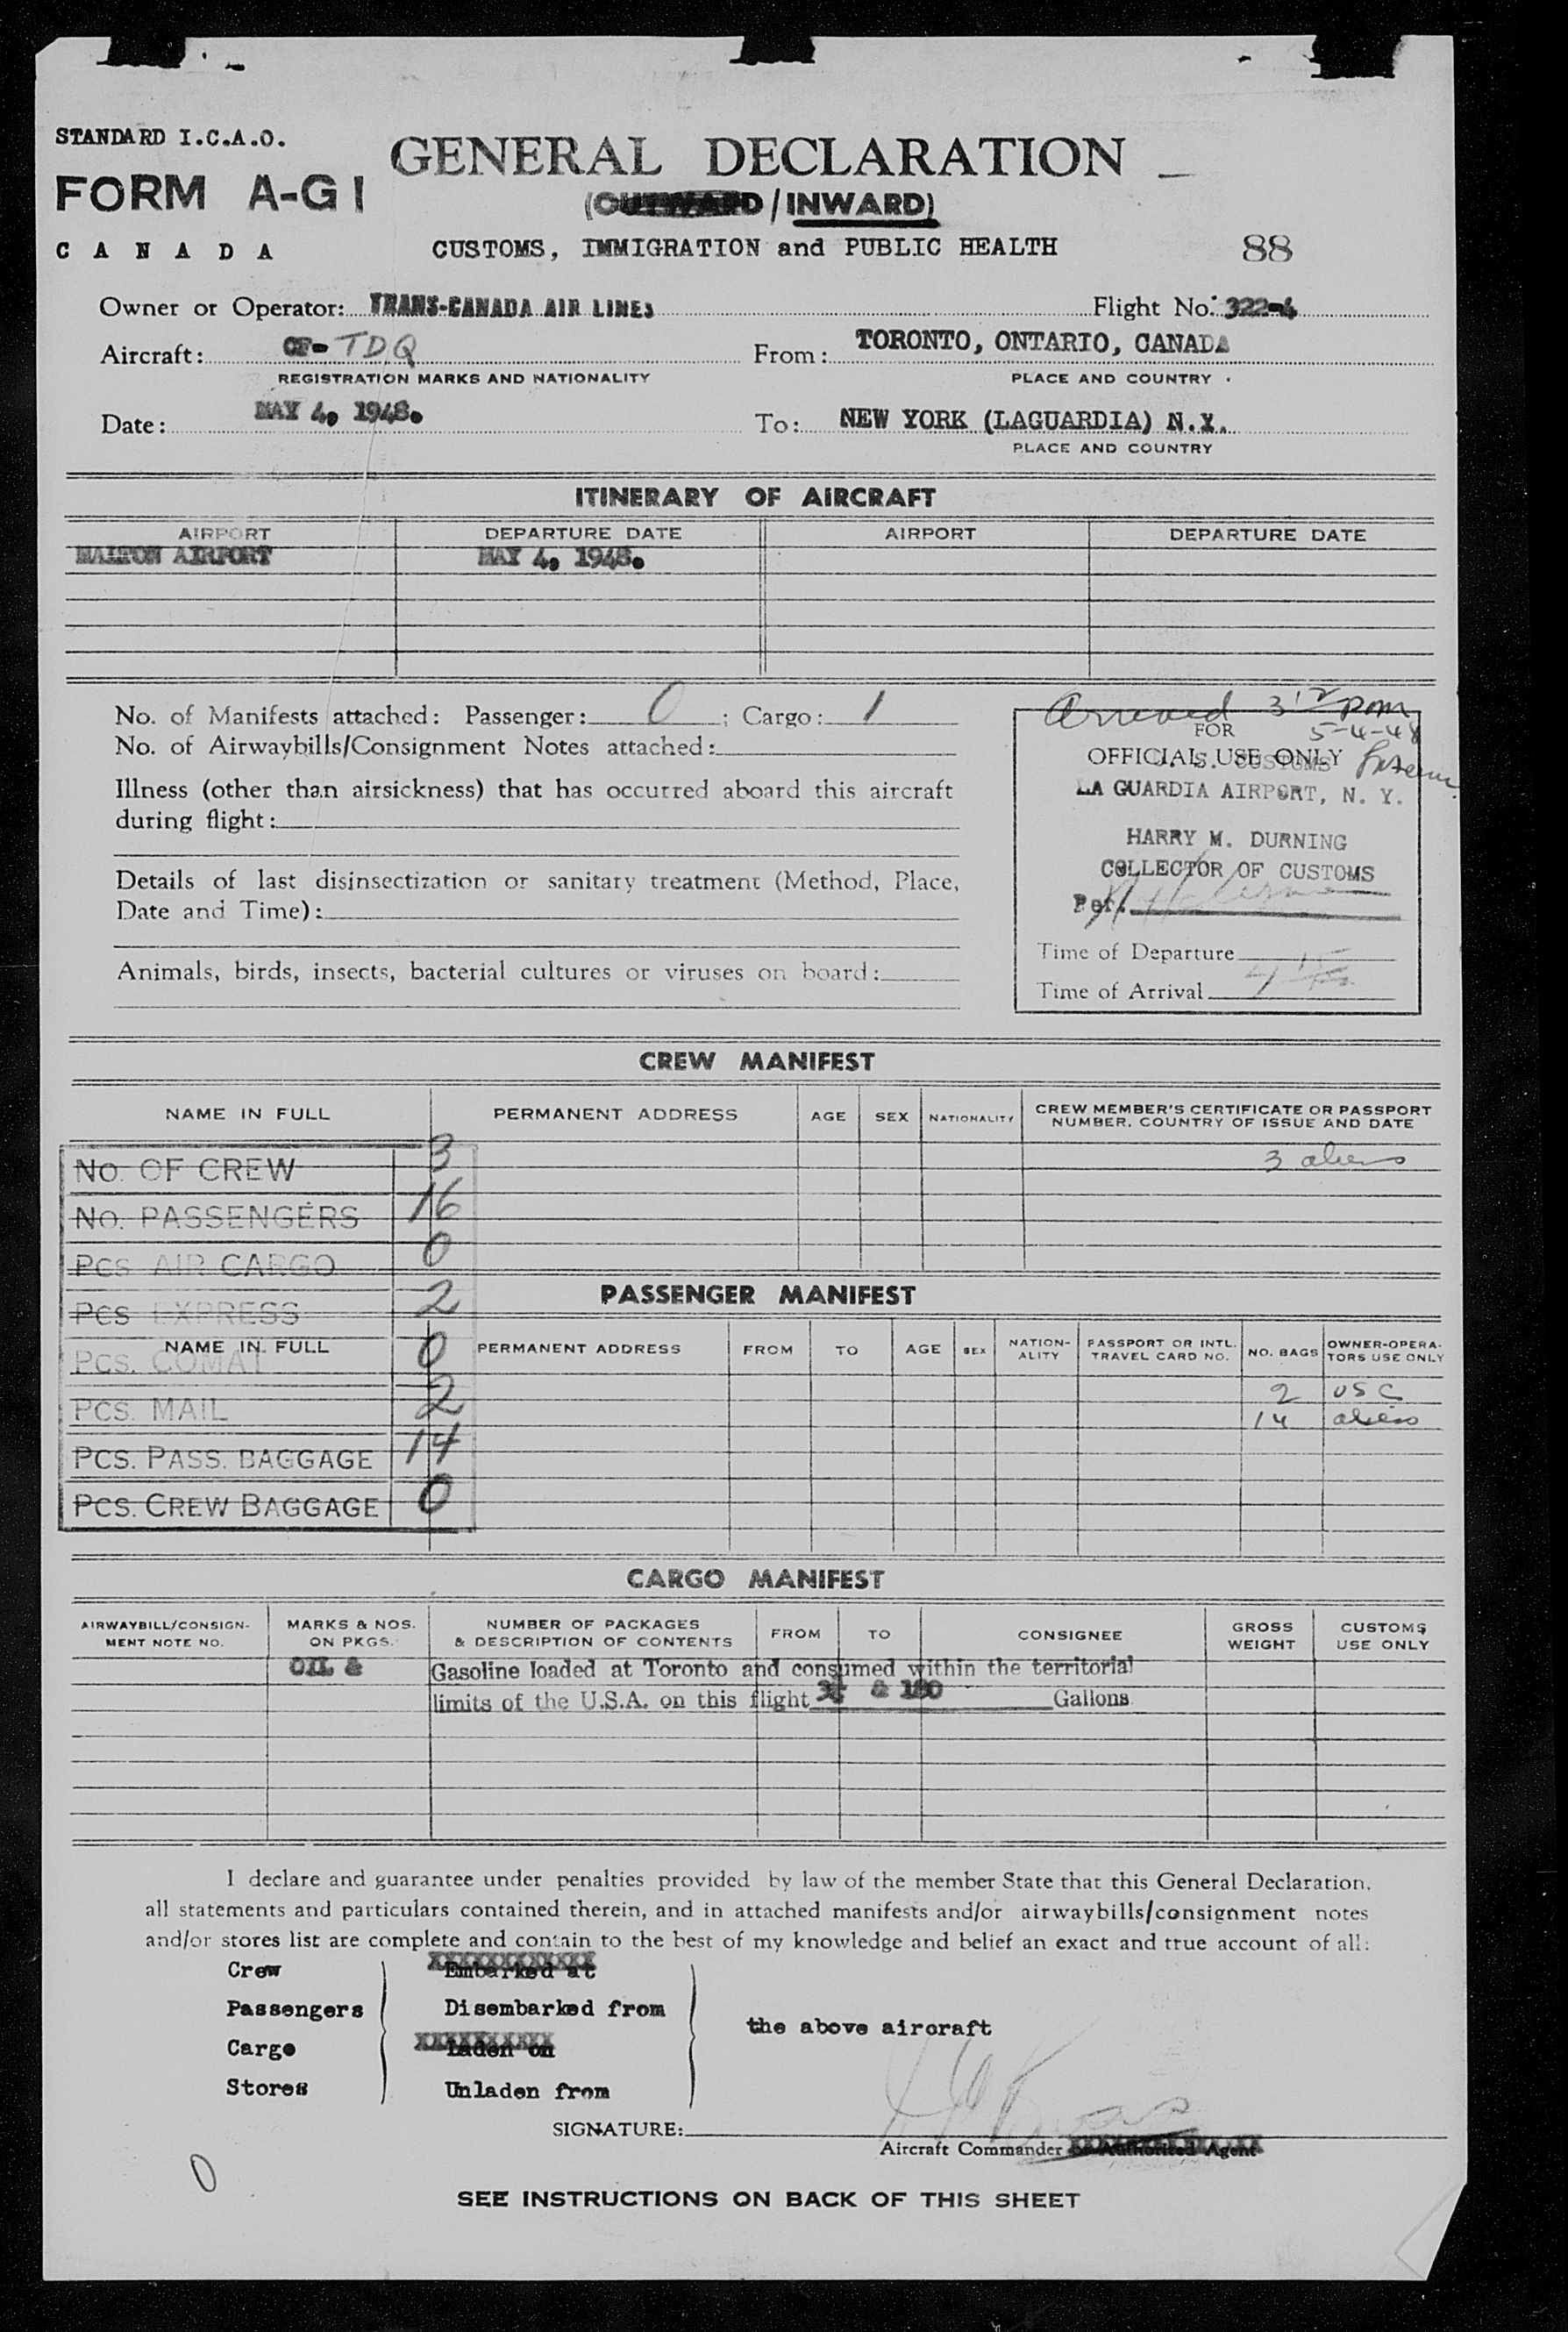 STANDARD I.C.A.O.
FORM A-G1
CANADA
GENERAL DECLARATION
(OUTWARD / INWARD)
CUSTOMS, IMMIGRATION and PUBLIC HEALTH
88
Owner or Operator: TRANS-CANADA AIR LINES Flight No: 322-4
Aircraft: CF-TDQ From: TORONTO, ONTARIO, CANADA
REGISTRATION MARKS AND NATIONALITY PLACE AND COUNTRY
Date: MAY 4, 1948. To: NEW YORK (LAGUARDIA) N.Y.
PLACE AND COUNTRY
ITINERARY OF AIRCRAFT
AIRPORT DEPARTURE DATE AIRPORT DEPARTURE DATE
MALTON AIRPORT MAY 4, 1948.
No. of Manifests attached: Passenger: 0 ; Cargo: 1
No. of Airwaybills/Consignment Notes attached:
Illness (other than airsickness) that has occurred aboard this aircraft
during flight:
Details of last disinsectization or sanitary treatment (Method, Place,
Date and Time):
Animals, birds, insects, bacterial cultures or viruses on board:
Arrived 3 12 pm
5-4-48
FOR
OFFICIAL USE ONLY
U. S. CUSTOMS
LA GUARDIA AIRPORT, N. Y.
HARRY M. DURNING
COLLECTOR OF CUSTOMS
Per.
Time of Departure
Time of Arrival
CREW MANIFEST
NAME IN FULL PERMANENT ADDRESS AGE SEX NATIONALITY CREW MEMBER'S CERTIFICATE OR PASSPORT
NUMBER, COUNTRY OF ISSUE AND DATE
3 aliens
No. OF CREW 3
No. PASSENGERS 16
Pcs AIR CARGO 0
Pcs EXPRESS 2
Pcs. COMAT 0
Pcs. MAIL 2
Pcs. PASS. BAGGAGE 14
Pcs. CREW BAGGAGE 0
PASSENGER MANIFEST
NAME IN FULL PERMANENT ADDRESS FROM TO AGE SEX NATION-
ALITY PASSPORT OR INTL.
TRAVEL CARD NO. NO. BAGS OWNER-OPERA-
TORS USE ONLY
2 USC
14 aliens
CARGO MANIFEST
AIRWAYBILL/CONSIGN-
MENT NOTE NO. MARKS & NOS.
ON PKGS. NUMBER OF PACKAGES
& DESCRIPTION OF CONTENTS FROM TO CONSIGNEE GROSS
WEIGHT CUSTOMS
USE ONLY
OIL & Gasoline loaded at Toronto and consumed within the territorial
limits of the U.S.A. on this flight & 180 Gallons
I declare and guarantee under penalties provided by law of the member State that this General Declaration,
all statements and particulars contained therein, and in attached manifests and/or airwaybills/consignment notes
and/or stores list are complete and contain to the best of my knowledge and belief an exact and true account of all:
Crew Embarked at
Passengers Disembarked from
the above aircraft
Cargo Laden on
Stores Unladen from
SIGNATURE:
Aircraft Commander or Authorized Agent
0
SEE INSTRUCTIONS ON BACK OF THIS SHEET